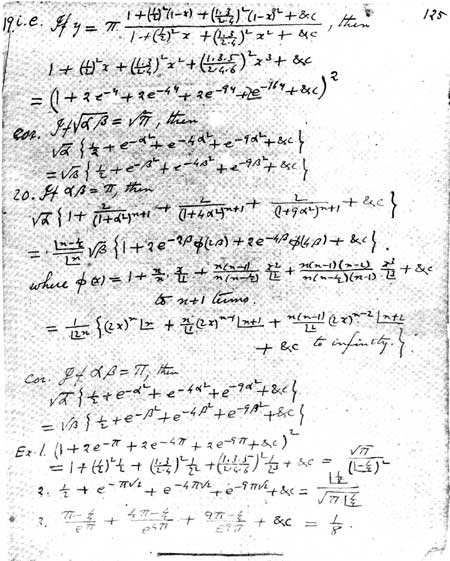 125
19, i.e. If y = π (1+(½)²(1-x)+(1.3/2.4)²(1-x)²+&c)/(1+(½)²x+(1.3/2.4)²x²+&c), then
1+(½)²x+(1.3/2.4)²x²+(1.3.5/2.4.6)²x³+&c
= (1+2e^{-y}+2e^{-4y}+2e^{-9y}+2e^{-16y}+&c)²
Cor. If √αβ = √π, then
√α {½+e^{-α²}+e^{-4α²}+e^{-9α²}+&c}
= √β {½+e^{-β²}+e^{-4β²}+e^{-9β²}+&c}
20. If αβ = π, then
√α {1+2/(1+α²)^{n+1}+2/(1+4α²)^{n+1}+2/(1+9α²)^{n+1}+&c}
= |n-½/|n √β {1+2e^{-2β}φ(2β)+2e^{-4β}φ(4β)+&c}.
where φ(x) = 1+n/n · x/|1+n(n-1)/n(n-½) x²/|2+n(n-1)(n-2)/n(n-½)(n-1) x³/|3+&c
to n+1 terms.
= 1/|2n {(2x)^n |n+n/|1 (2x)^{n-1} |n+1+n(n-1)/|2 (2x)^{n-2} |n+2
+ &c to infinity.}
Cor. If αβ = π, then
√α {½+e^{-α²}+e^{-4α²}+e^{-9α²}+&c}
= √β {½+e^{-β²}+e^{-4β²}+e^{-9β²}+&c}
Ex. 1. (1+2e^{-π}+2e^{-4π}+2e^{-9π}+&c)²
= 1+(½)²½+(1.3/2.4)²1/2²+(1.3.5/2.4.6)²1/2³+&c = √π/(|-¼)²
2. ½+e^{-π√2}+e^{-4π√2}+e^{-9π√2}+&c =
3. (π-¼)/e^π+(4π-¼)/e^{4π}+(9π-¼)/e^{9π}+&c = 1/8.